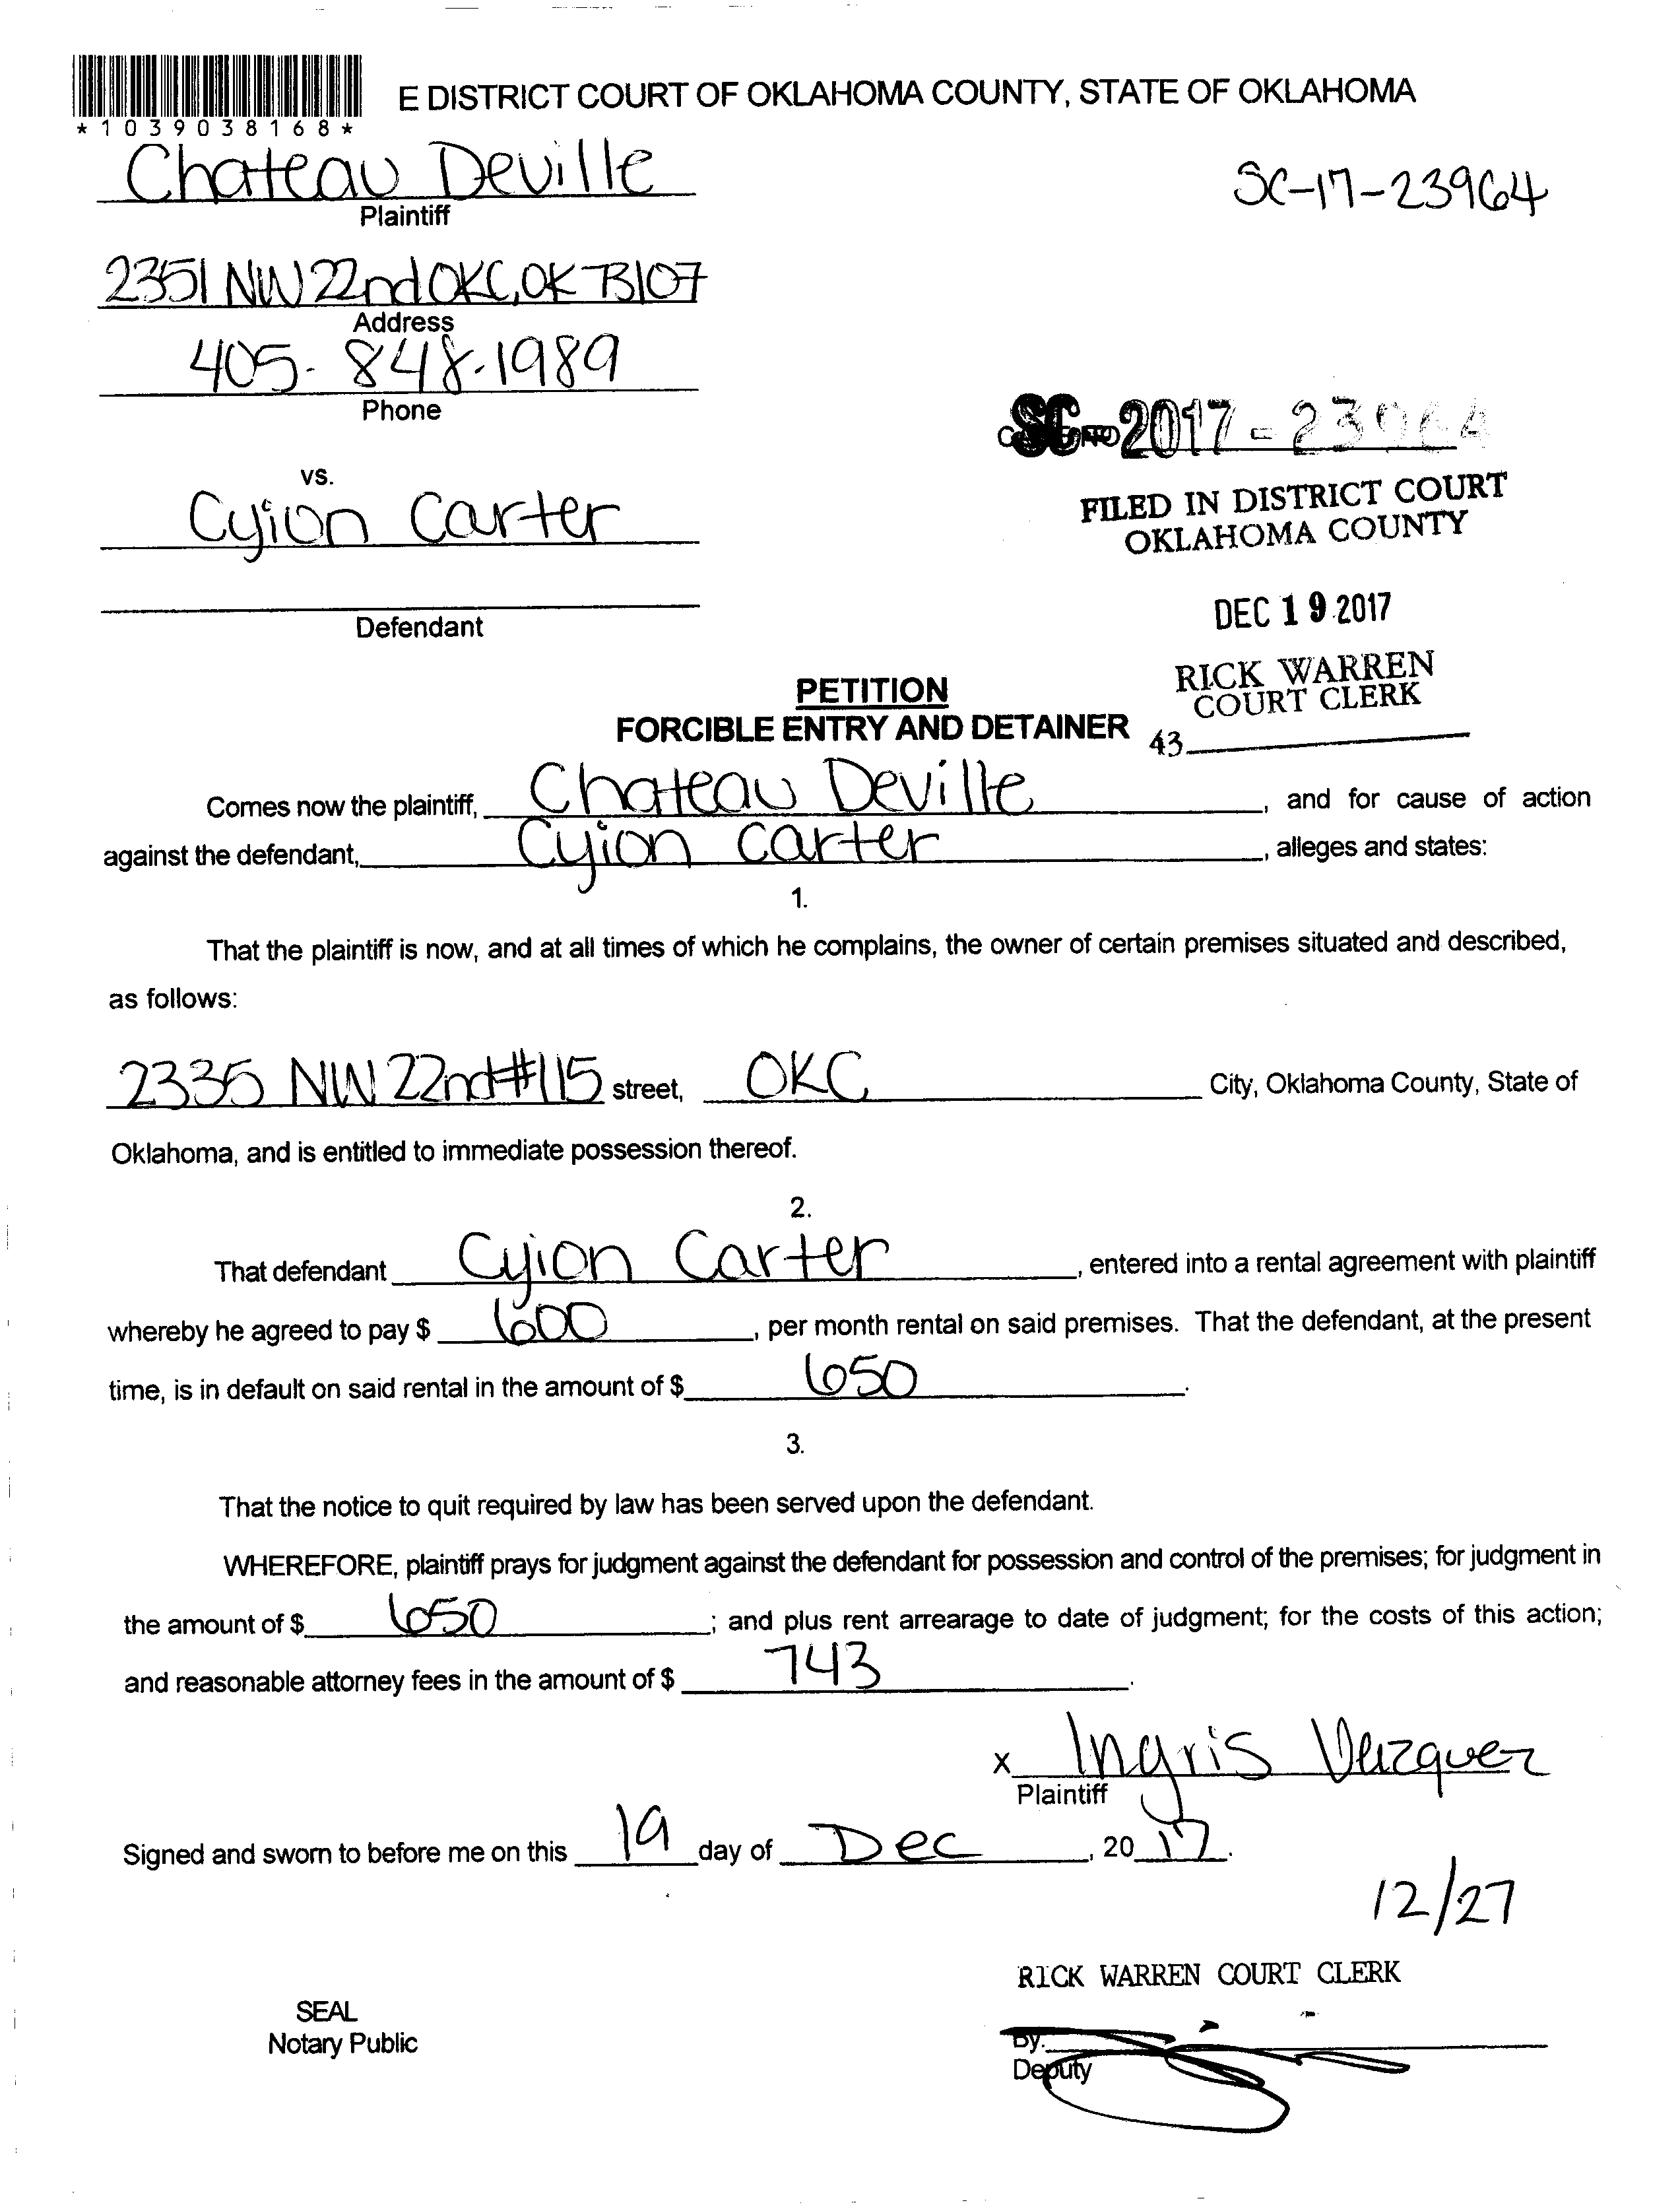 *1039038168*
E DISTRICT COURT OF OKLAHOMA COUNTY, STATE OF OKLAHOMA
Chateau Deville
Plaintiff
SC-17-23964
2351 NW 22nd OKC, OK 73107
Address
405-848-1989
Phone
SC-2017-23964
vs.
Cyjion Carter
FILED IN DISTRICT COURT
OKLAHOMA COUNTY
Defendant
DEC 19 2017
RICK WARREN
COURT CLERK
43
PETITION
FORCIBLE ENTRY AND DETAINER
Comes now the plaintiff, Chateau Deville, and for cause of action
against the defendant, Cyjion Carter, alleges and states:
1.
That the plaintiff is now, and at all times of which he complains, the owner of certain premises situated and described,
as follows:
2335 NW 22nd #115 street, OKC City, Oklahoma County, State of
Oklahoma, and is entitled to immediate possession thereof.
2.
That defendant Cyjion Carter, entered into a rental agreement with plaintiff
whereby he agreed to pay $ 600, per month rental on said premises. That the defendant, at the present
time, is in default on said rental in the amount of $ 650.
3.
That the notice to quit required by law has been served upon the defendant.
WHEREFORE, plaintiff prays for judgment against the defendant for possession and control of the premises; for judgment in
the amount of $ 650; and plus rent arrearage to date of judgment; for the costs of this action;
and reasonable attorney fees in the amount of $ 743.
x Ingris Vazquez
Plaintiff
Signed and sworn to before me on this 19 day of Dec, 20 17.
12/27
RICK WARREN COURT CLERK
SEAL
Notary Public
By:
Deputy